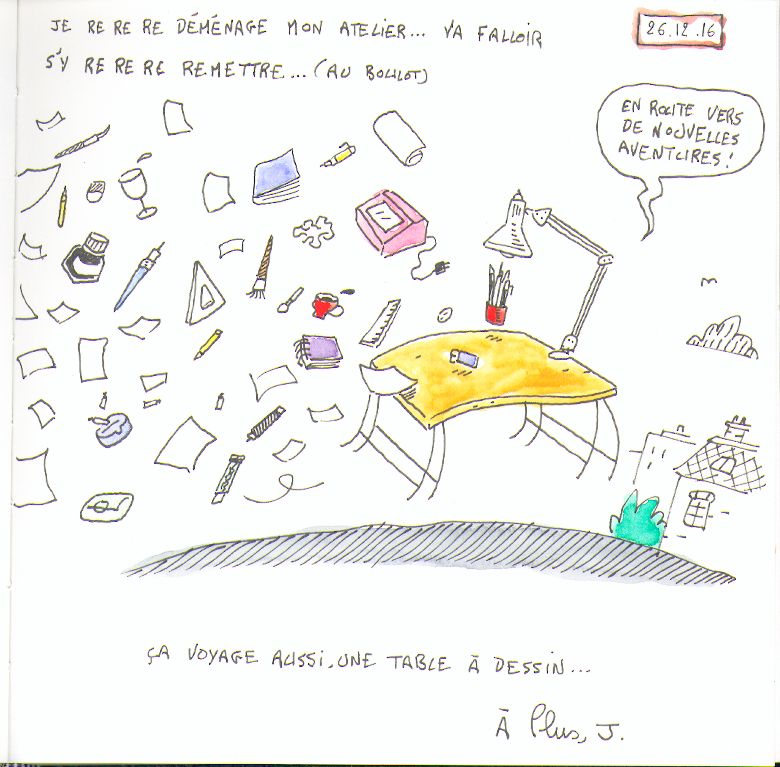 JE RE RE RE DÉMÉNAGE MON ATELIER... VA FALLOIR
S'Y RE RE RE REMETTRE... (AU BOULOT)
26.12.16
EN ROUTE VERS
DE NOUVELLES
AVENTURES!
ÇA VOYAGE AUSSI, UNE TABLE À DESSIN...
À Plus, J.